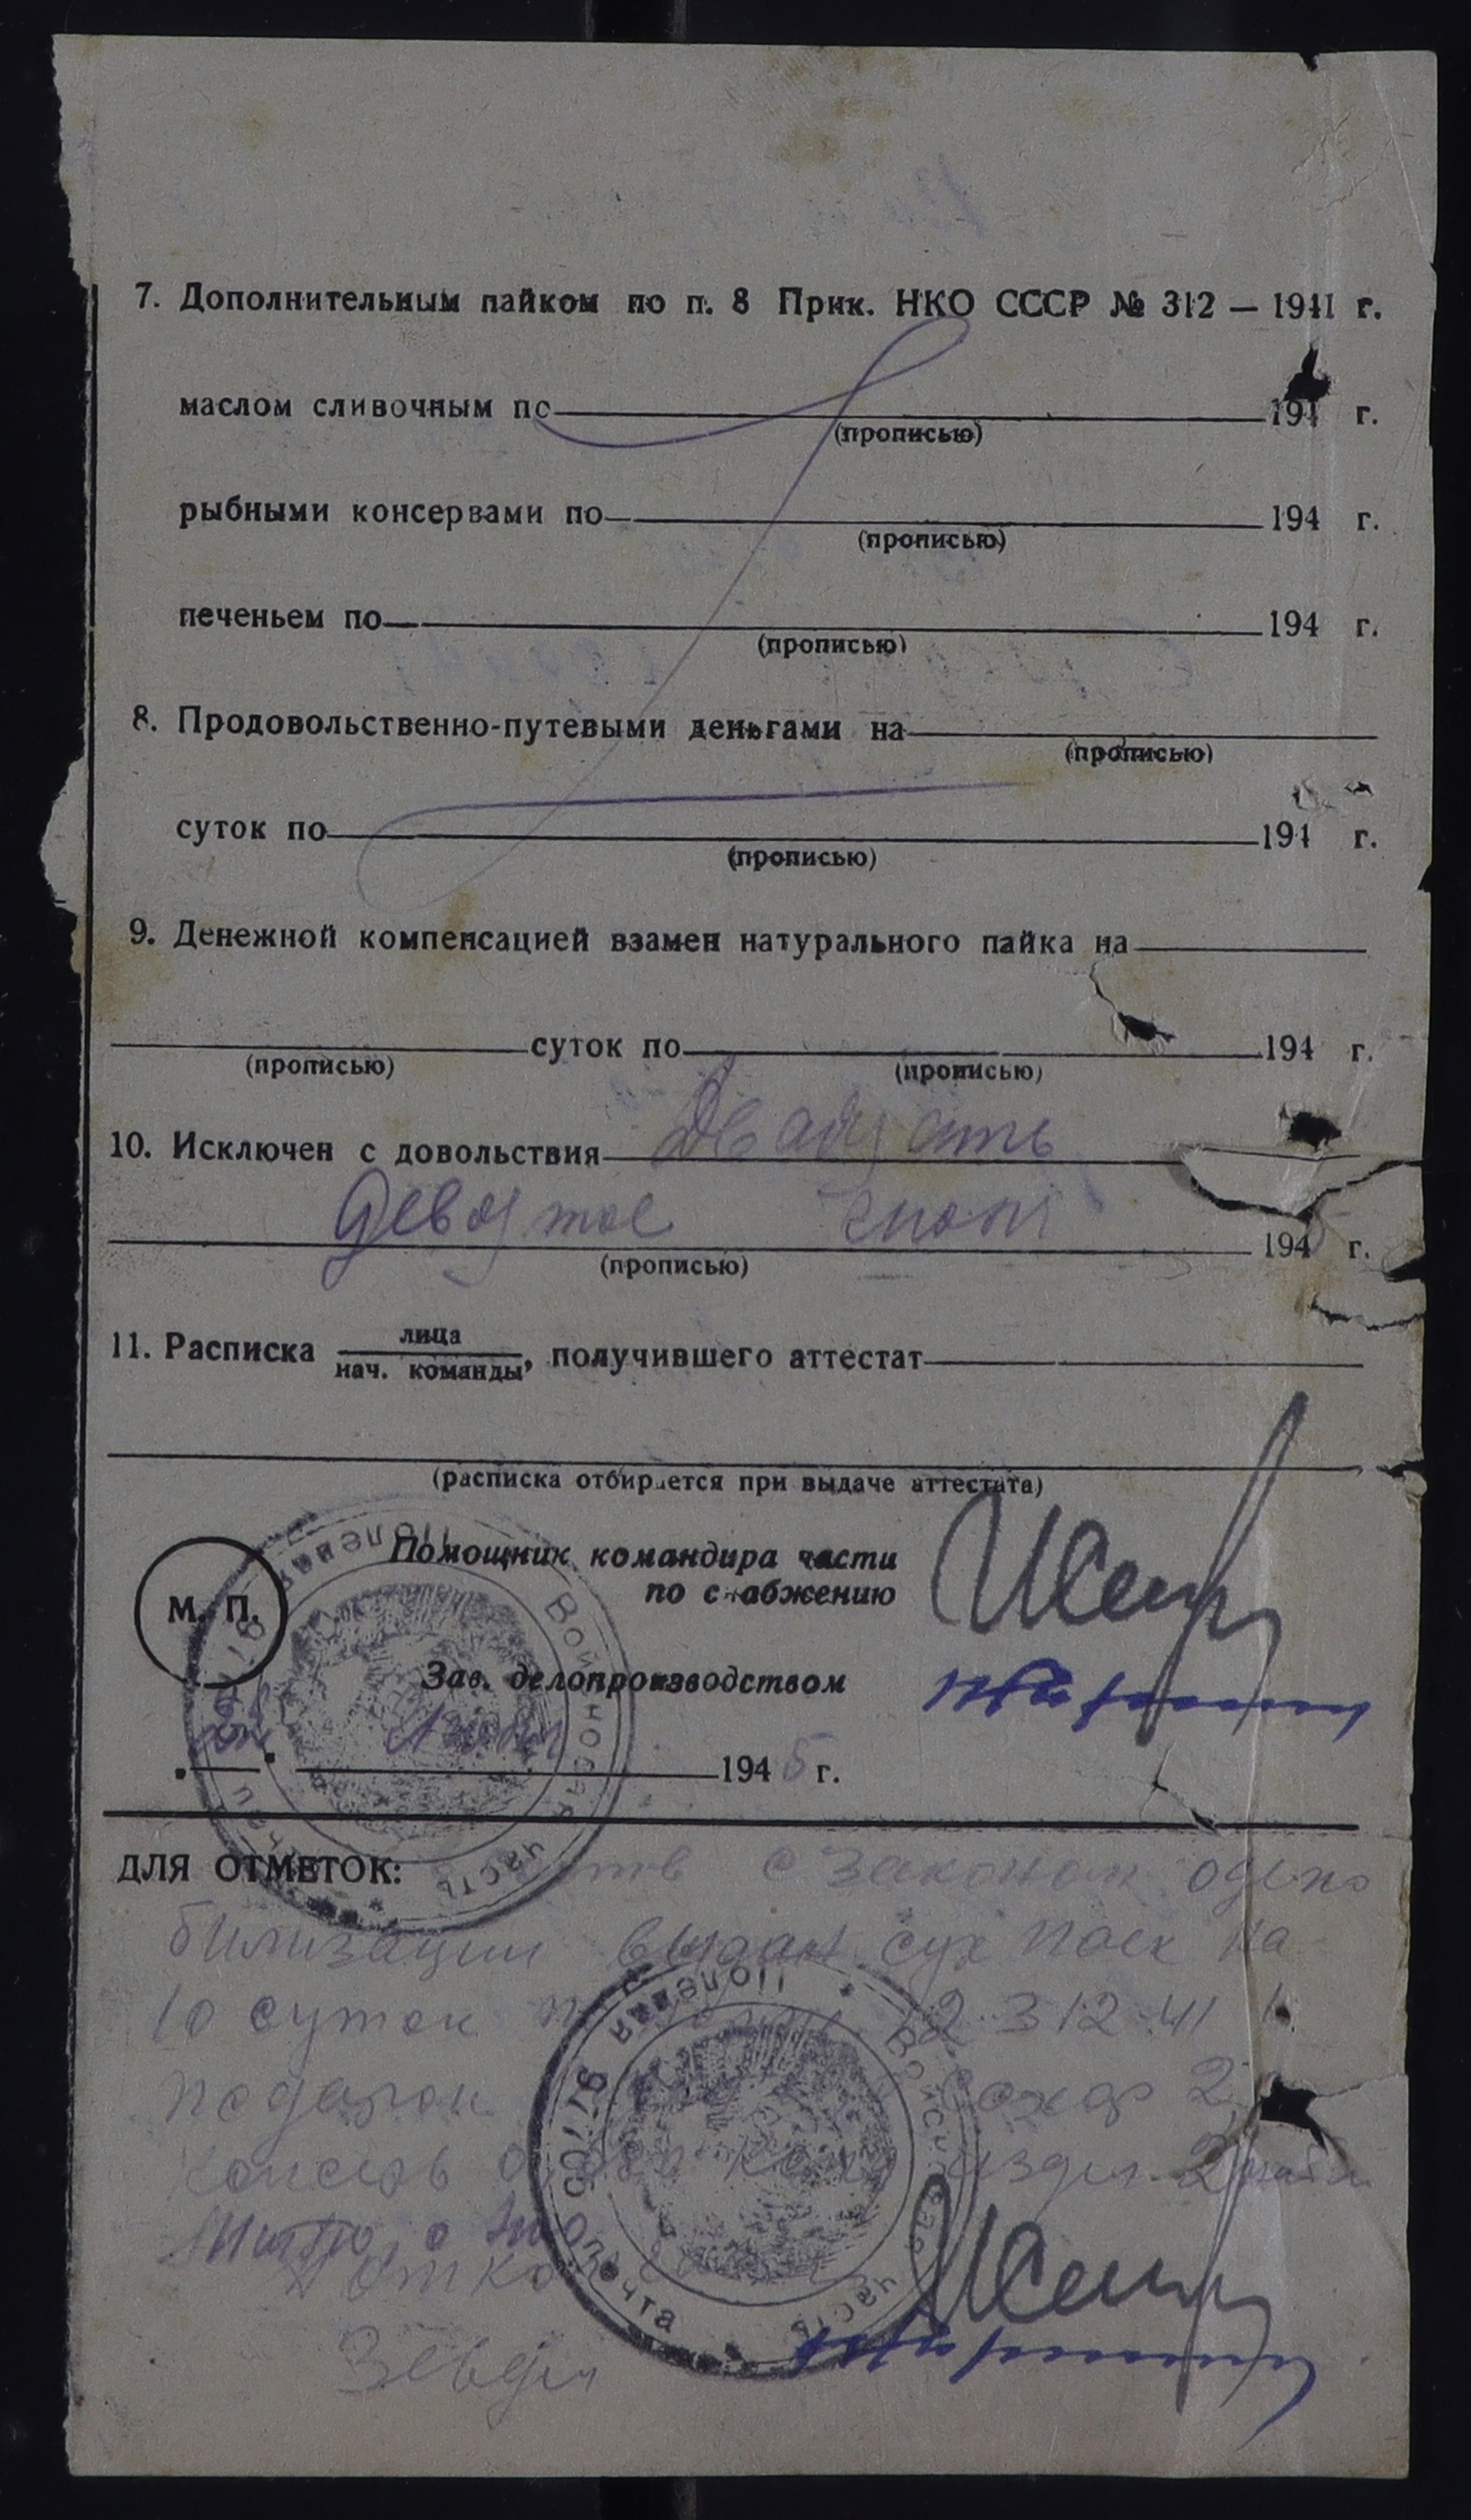 7. Дополнительным пайком по п. 8 Прик. НКО СССР № 312 — 1941 г.
маслом сливочным по 194 г.
(прописью)
рыбными консервами по 194 г.
(прописью)
печеньем по 194 г.
(прописью)
8. Продовольственно-путевыми деньгами на
(прописью)
суток по 194 г.
(прописью)
9. Денежной компенсацией взамен натурального пайка на
суток по 194 г.
(прописью) (прописью)
10. Исключен с довольствия Двадцать
девятое 1945 г.
(прописью)
11. Расписка лица
нач. команды, получившего аттестат
(расписка отбирается при выдаче аттестата)
Помощник командира части
по снабжению
М. П.
Зав. делопроизводством
1945 г.
Войсковая часть Полевая почта
ДЛЯ ОТМЕТОК: с законом о демо
билизации выдан сух паек на
10 суток 312-41
подарок сахар 2
издел. 2
Войсковая часть Полевая почта 97705